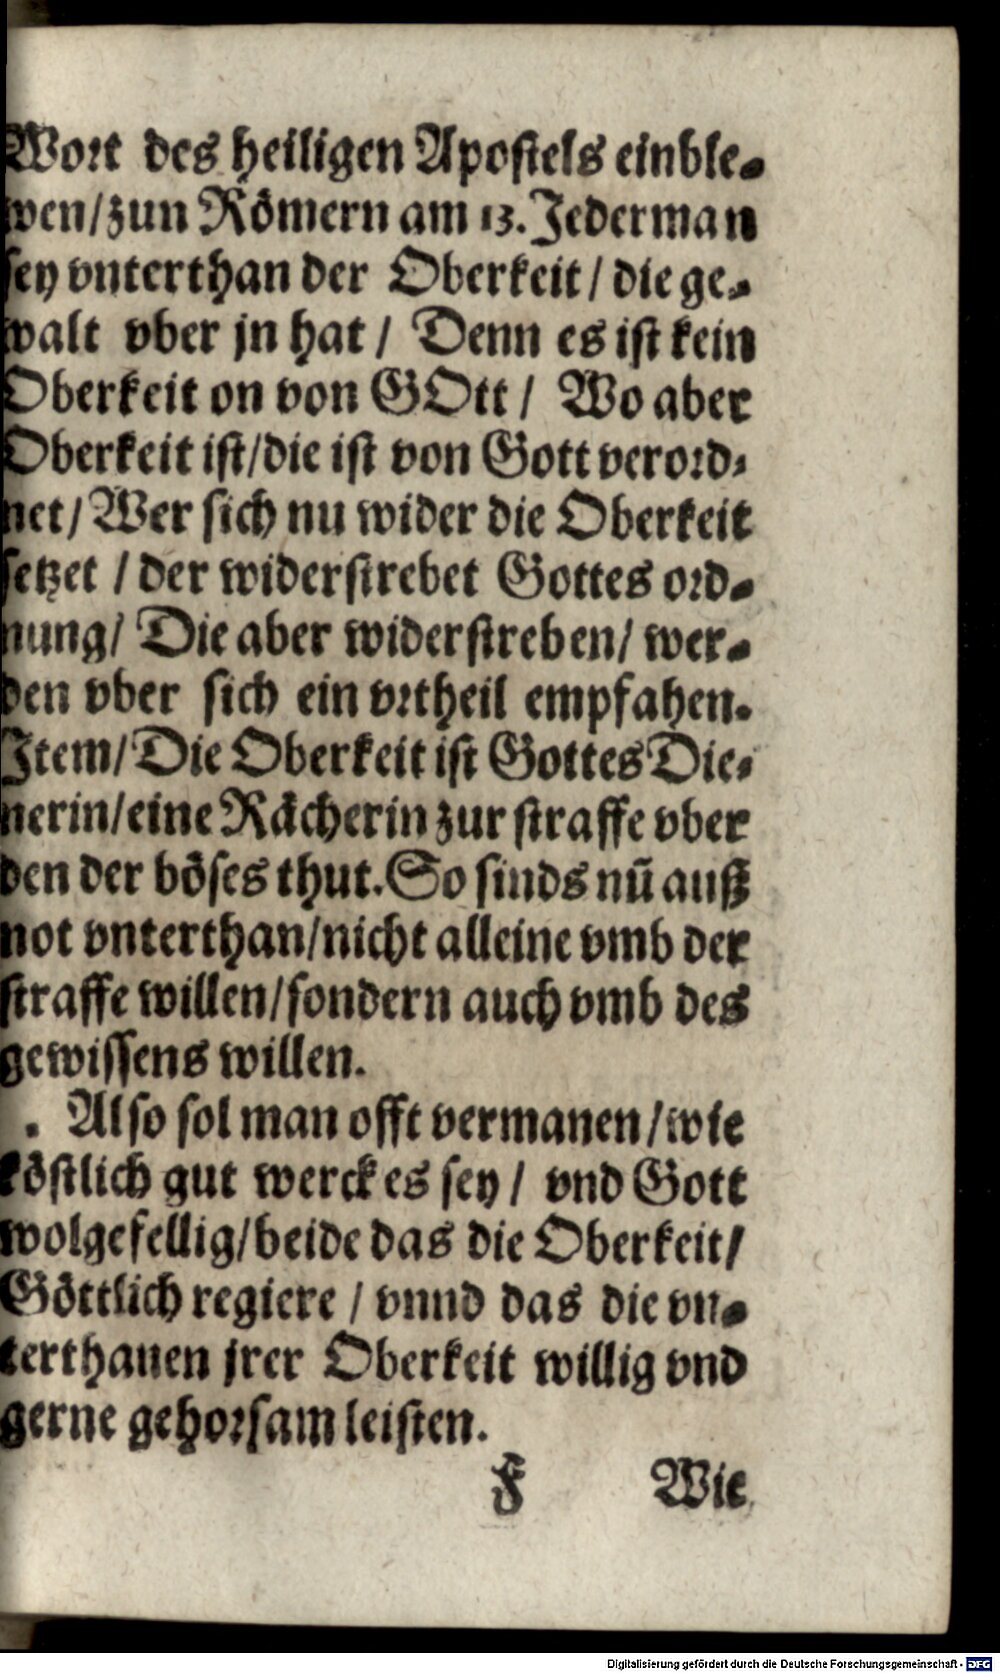 Wort des heiligen Apostels einble-
wen/zun Römern am 13. Jederman
sey vnterthan der Oberkeit / die ge-
walt vber jn hat / Denn es ist kein
Oberkeit on von GOtt / Wo aber
Oberkeit ist/die ist von Gott verord-
net/ Wer sich nu wider die Oberkeit
setzet / der widerstrebet Gottes ord-
nung/ Die aber widerstreben/ wer-
den vber sich ein vrtheil empfahen.
Item/ Die Oberkeit ist Gottes Die-
nerin/eine Rächerin zur straffe vber
den der böses thut. So sinds nū auß
not vnterthan/nicht alleine vmb der
straffe willen/sondern auch vmb des
gewissens willen.
Also sol man offt vermanen/wie
köstlich gut werck es sey / vnd Gott
wolgefellig/beide das die Oberkeit/
Göttlich regiere / vnnd das die vn-
terthanen jrer Oberkeit willig vnd
gerne gehorsam leisten.
F Wie
Digitalisierung gefördert durch die Deutsche Forschungsgemeinschaft - DFG